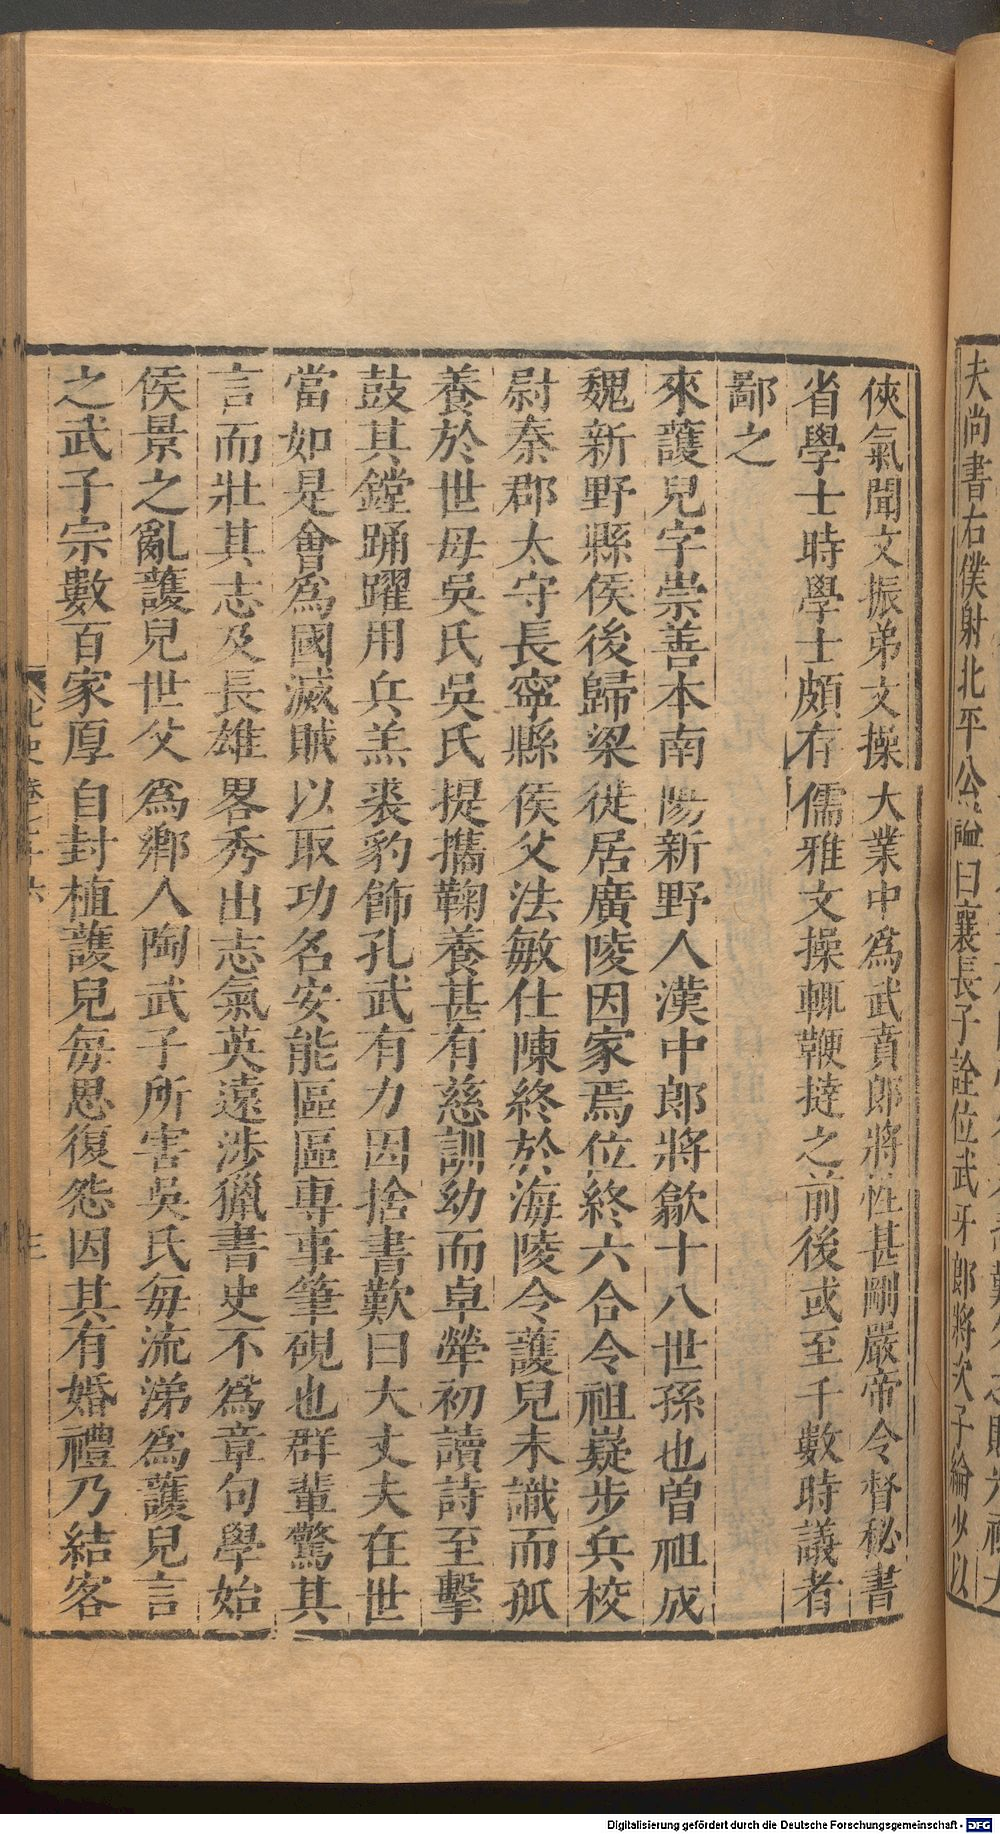 夫尚書右僕射北平公謚曰襄長子詮位武牙郎將次子綸少以
俠氣聞文振弟文操大業中爲武賁郎將性甚剛嚴帝令督秘書
省學士時學士頗有儒雅文操輒鞭撻之前後或至千數時議者
鄙之
來護兒字崇善本南陽新野人漢中郎將歙十八世孫也曽祖成
魏新野縣侯後歸梁徙居廣陵因家焉位終六合令祖嶷步兵校
尉秦郡太守長寧縣侯父法敏仕陳終於海陵令護兒未識而孤
養於世母吳氏吳氏提攜鞠養甚有慈訓幼而卓犖初讀詩至擊
鼓其鏜踊躍用兵羔裘豹飾孔武有力因捨書歎曰大丈夫在世
當如是會爲國滅賊以取功名安能區區專事筆硯也群輩驚其
言而壯其志及長雄畧秀出志氣英遠涉獵書史不爲章句學始
侯景之亂護兒世父爲鄉人陶武子所害吳氏每流涕爲護兒言
之武子宗數百家厚自封植護兒每思復怨因其有婚禮乃結客
Digitalisierung gefördert durch die Deutsche Forschungsgemeinschaft - DFG